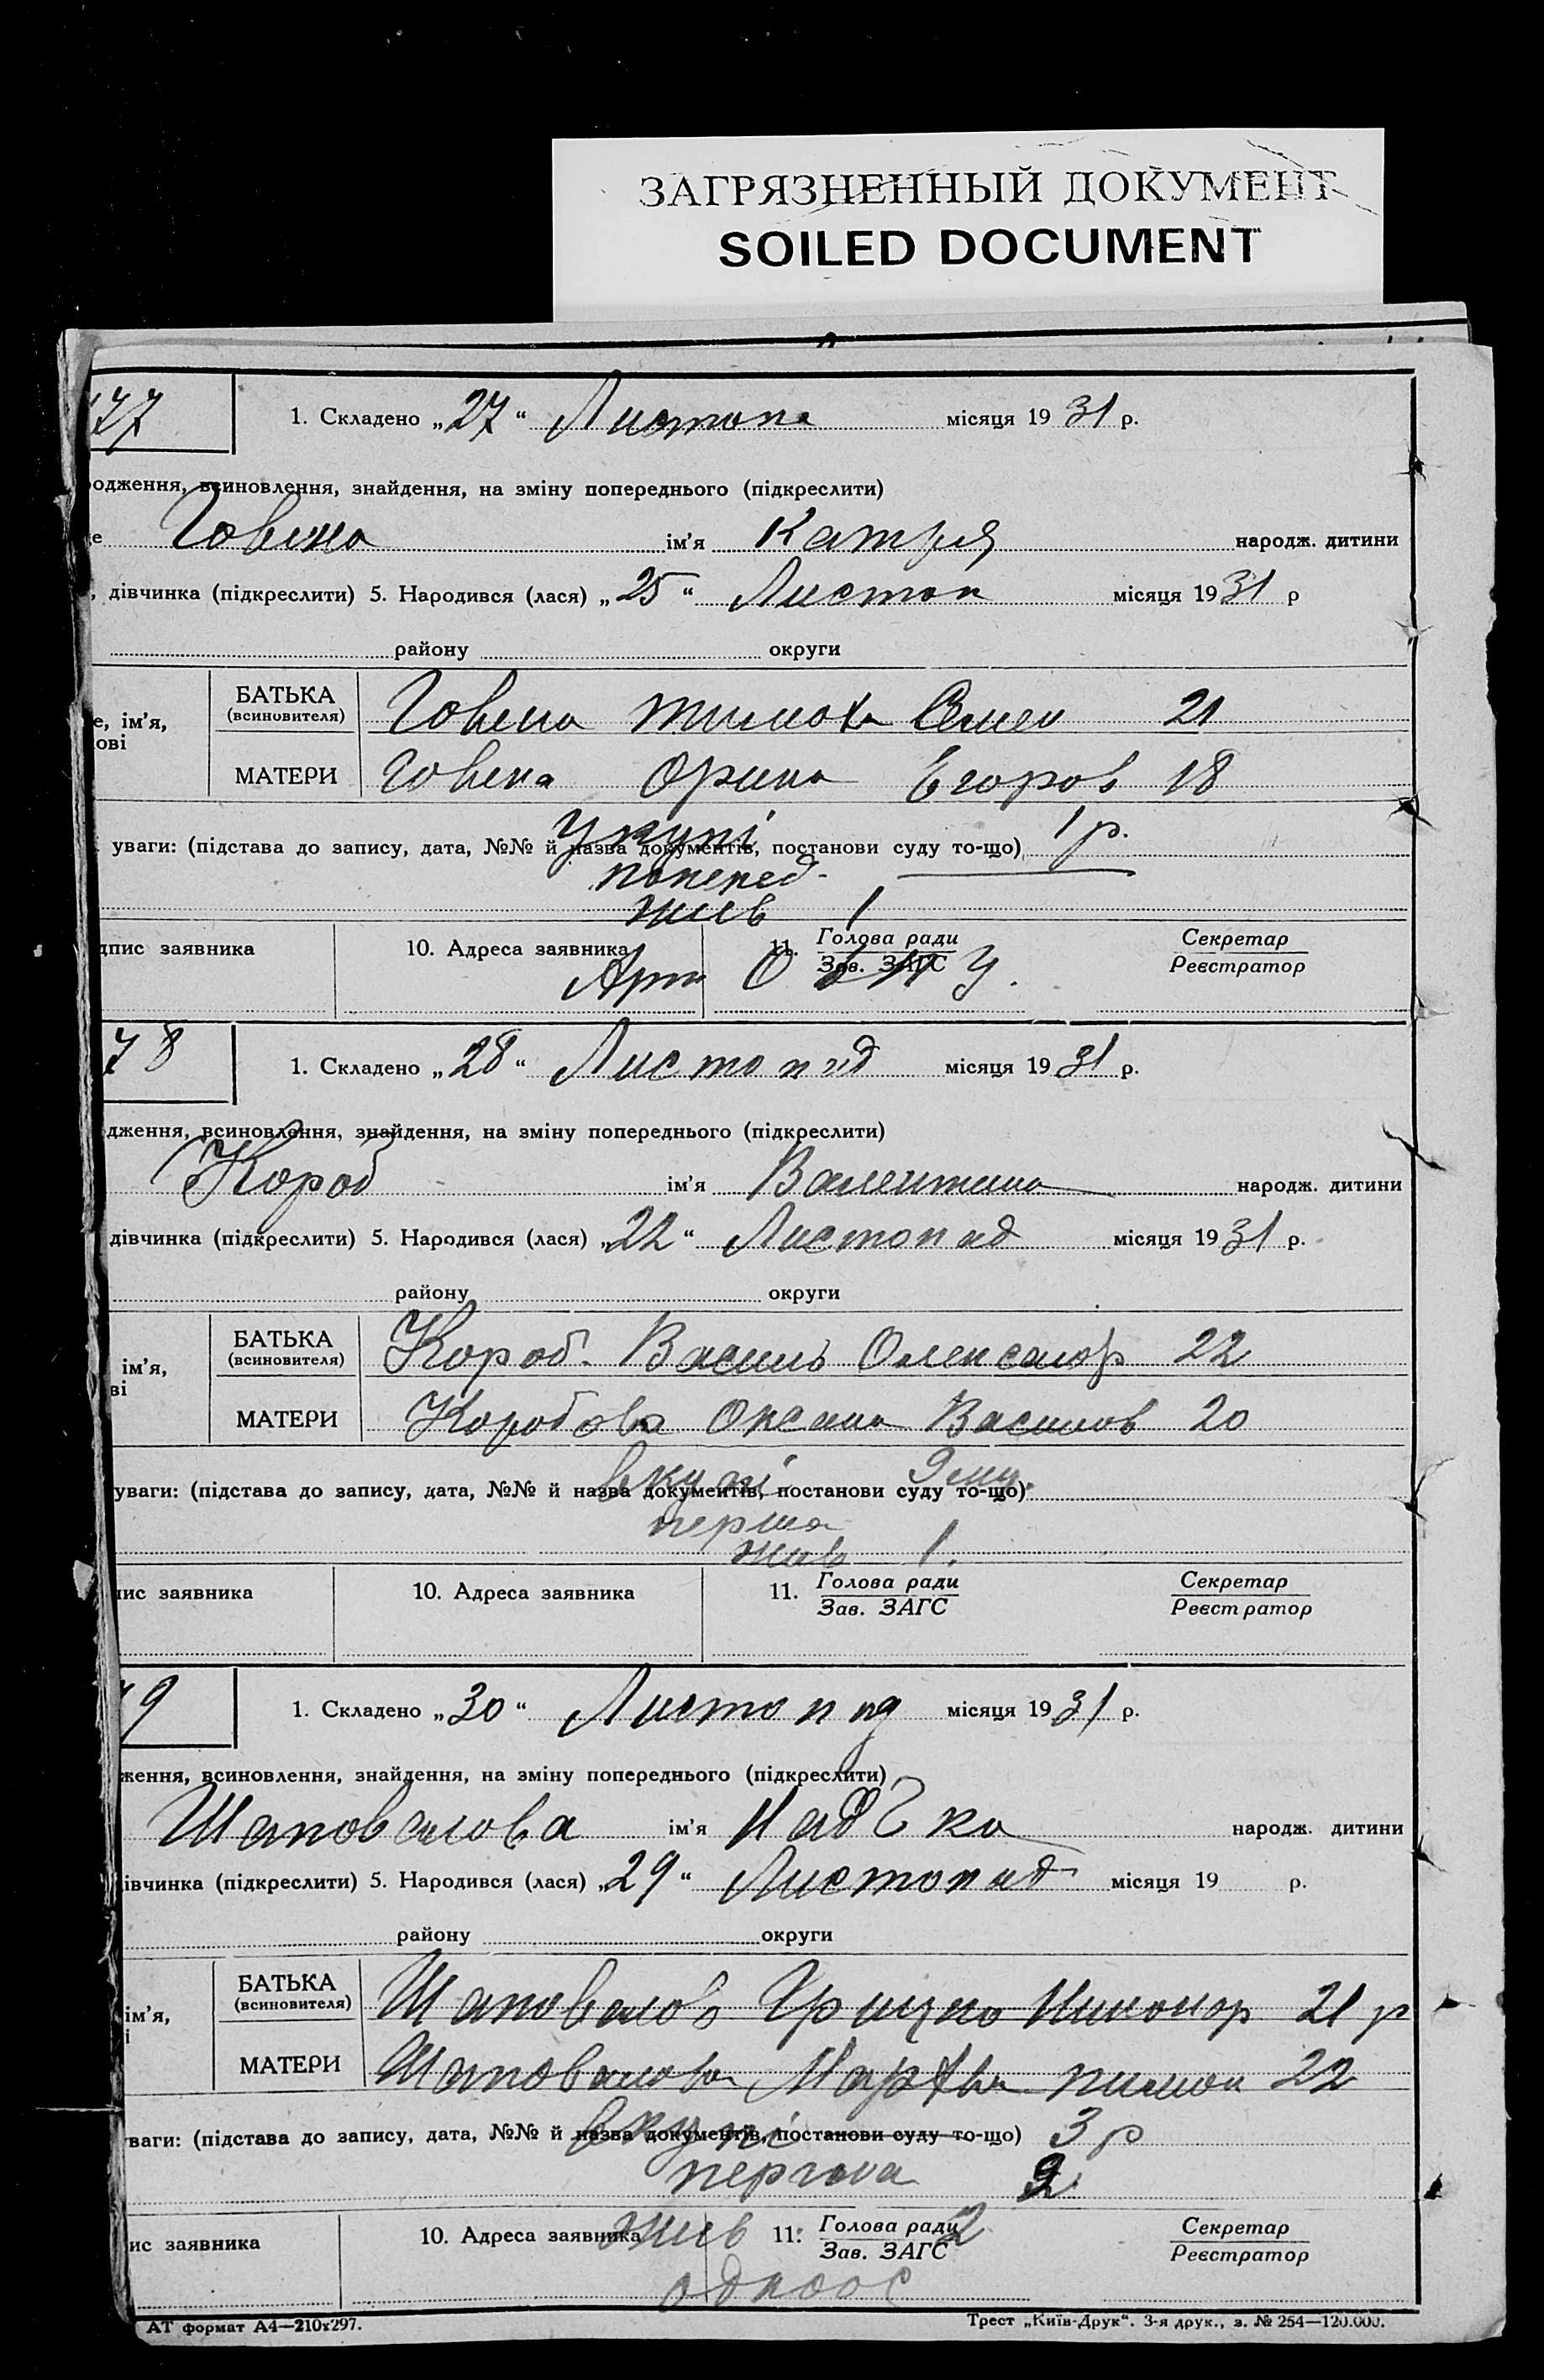 ЗАГРЯЗНЕННЫЙ ДОКУМЕНТ
SOILED DOCUMENT
77
1. Складено „27“ Листопа місяця 1931 р.
одження, всиновлення, знайдення, на зміну попереднього (підкреслити)
е Говена ім'я Катря народж. дитини
, дівчинка (підкреслити) 5. Народився (лася) „25“ Листоп місяця 1931 р
району округи
е, ім'я,
ові
БАТЬКА
(всиновителя)
Говена Тимоха Семен 21
МАТЕРИ Говена Орина Егоров 18
Укупі 1 р.
уваги: (підстава до запису, дата, №№ й назва документів, постанови суду то-що)
поперед.
жив 1
дпис заявника 10. Адреса заявника 11. Голова ради Секретар
Зав. ЗАГС Реєстратор
78
1. Складено „28“ Листопад місяця 1931 р.
дження, всиновлення, знайдення, на зміну попереднього (підкреслити)
Короб ім'я Валентина народж. дитини
дівчинка (підкреслити) 5. Народився (лася) „22“ Листопад місяця 1931 р.
району округи
ім'я,
ві
БАТЬКА
(всиновителя)
Короб. Василь Олександр 22
МАТЕРИ Коробова Оксана Василов 20
вкупі
уваги: (підстава до запису, дата, №№ й назва документів, постанови суду то-що)
перша
жив 1.
пис заявника 10. Адреса заявника 11. Голова ради Секретар
Зав. ЗАГС Реєстратор
9
1. Складено „30“ Листопад місяця 1931 р.
ження, всиновлення, знайдення, на зміну попереднього (підкреслити)
Шаповалова ім'я Надька народж. дитини
івчинка (підкреслити) 5. Народився (лася) „29“ Листопад місяця 19 р.
району округи
ім'я,
і
БАТЬКА
(всиновителя)
Шаповалов Грицко Никонор 21 р
МАТЕРИ Шаповалова Марфа Пилип 22
вкупі 3 р
ваги: (підстава до запису, дата, №№ й назва документів, постанови суду то-що)
перша 2
жив 2
ис заявника 10. Адреса заявника 11. Голова ради Секретар
Зав. ЗАГС Реєстратор
одноос
АТ формат А4—210x297. Трест „Київ-Друк“. 3-я друк., з. № 254—120.000.